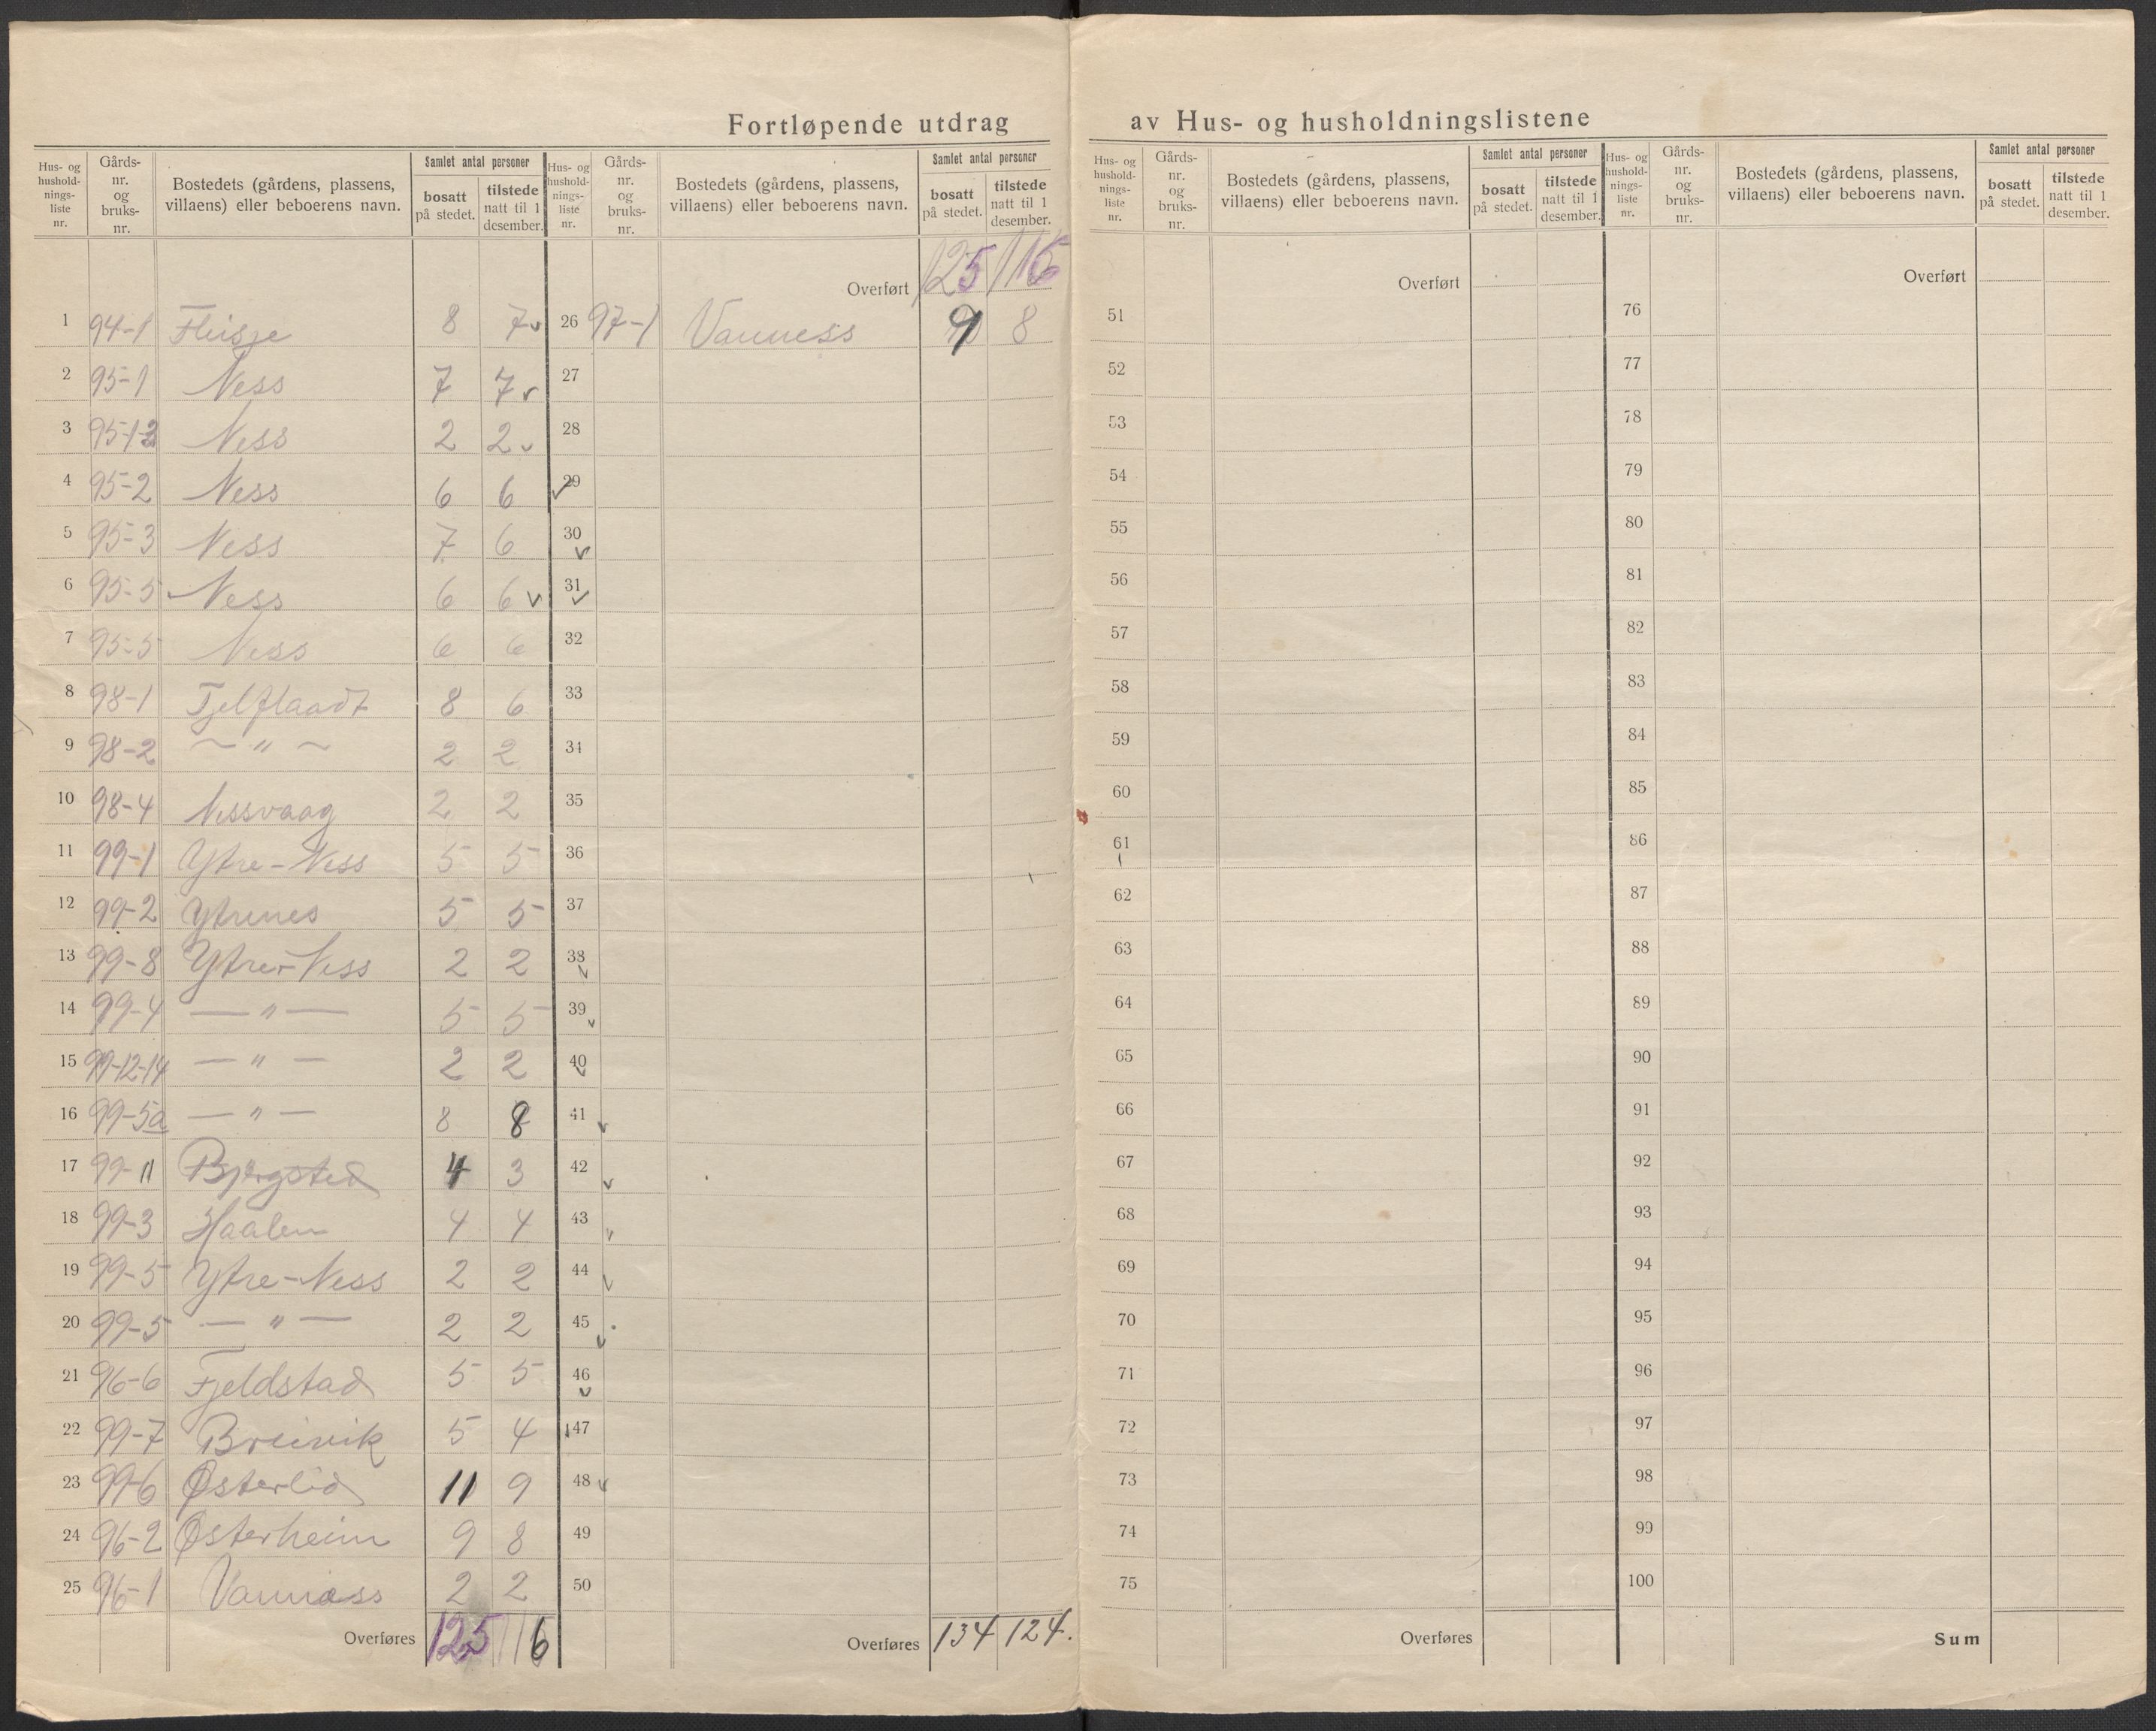 Fortløpende utdrag av Hus- og husholdningslistene
Hus- og hushold-nings-liste nr. Gårds-nr. og bruks-nr. Bostedets (gårdens, plassens, villaens) eller beboerens navn. Samlet antal personer bosatt på stedet. tilstede natt til 1 desember.
1 94-1 Fleisje 8 7 v
2 95-1 Ness 7 7 v
3 95-1-2 Ness 2 2 v
4 95-2 Ness 6 6
5 95-3 Ness 7 6
6 95-5 Ness 6 6 v
7 95-5 Ness 6 6
8 98-1 Tjelflaadt 8 6
9 98-2 ~ " ~ 2 2
10 98-4 Nessvaag 2 2
11 99-1 Ytre-Ness 5 5
12 99-2 Ytrenes 5 5
13 99-8 Ytre-Ness 2 2
14 99-4 — " — 5 5
15 99-12-14 — " — 2 2
16 99-5a — " — 8 8
17 99-11 Bjørgsted 4 3
18 99-3 Haalen 4 4
19 99-5 Ytre-Ness 2 2
20 99-5 — " — 2 2
21 96-6 Fjeldstad 5 5
22 99-7 Breivik 5 4
23 99-6 Østerlid 11 9
24 96-2 Østerheim 9 8
25 96-1 Vanness 2 2
Overføres 125 116
Hus- og hushold-nings-liste nr. Gårds-nr. og bruks-nr. Bostedets (gårdens, plassens, villaens) eller beboerens navn. Samlet antal personer bosatt på stedet. tilstede natt til 1 desember.
Overført 125 116
26 97-1 Vanness 9 8
27
28
29
30
31
32
33
34
35
36
37
38
39
40
41
42
43
44
45
46
47
48
49
50
Overføres 134 124.
Hus- og hushold-nings-liste nr. Gårds-nr. og bruks-nr. Bostedets (gårdens, plassens, villaens) eller beboerens navn. Samlet antal personer bosatt på stedet. tilstede natt til 1 desember.
Overført
51
52
53
54
55
56
57
58
59
60
61
62
63
64
65
66
67
68
69
70
71
72
73
74
75
Overføres
Hus- og hushold-nings-liste nr. Gårds-nr. og bruks-nr. Bostedets (gårdens, plassens, villaens) eller beboerens navn. Samlet antal personer bosatt på stedet. tilstede natt til 1 desember.
Overført
76
77
78
79
80
81
82
83
84
85
86
87
88
89
90
91
92
93
94
95
96
97
98
99
100
Sum